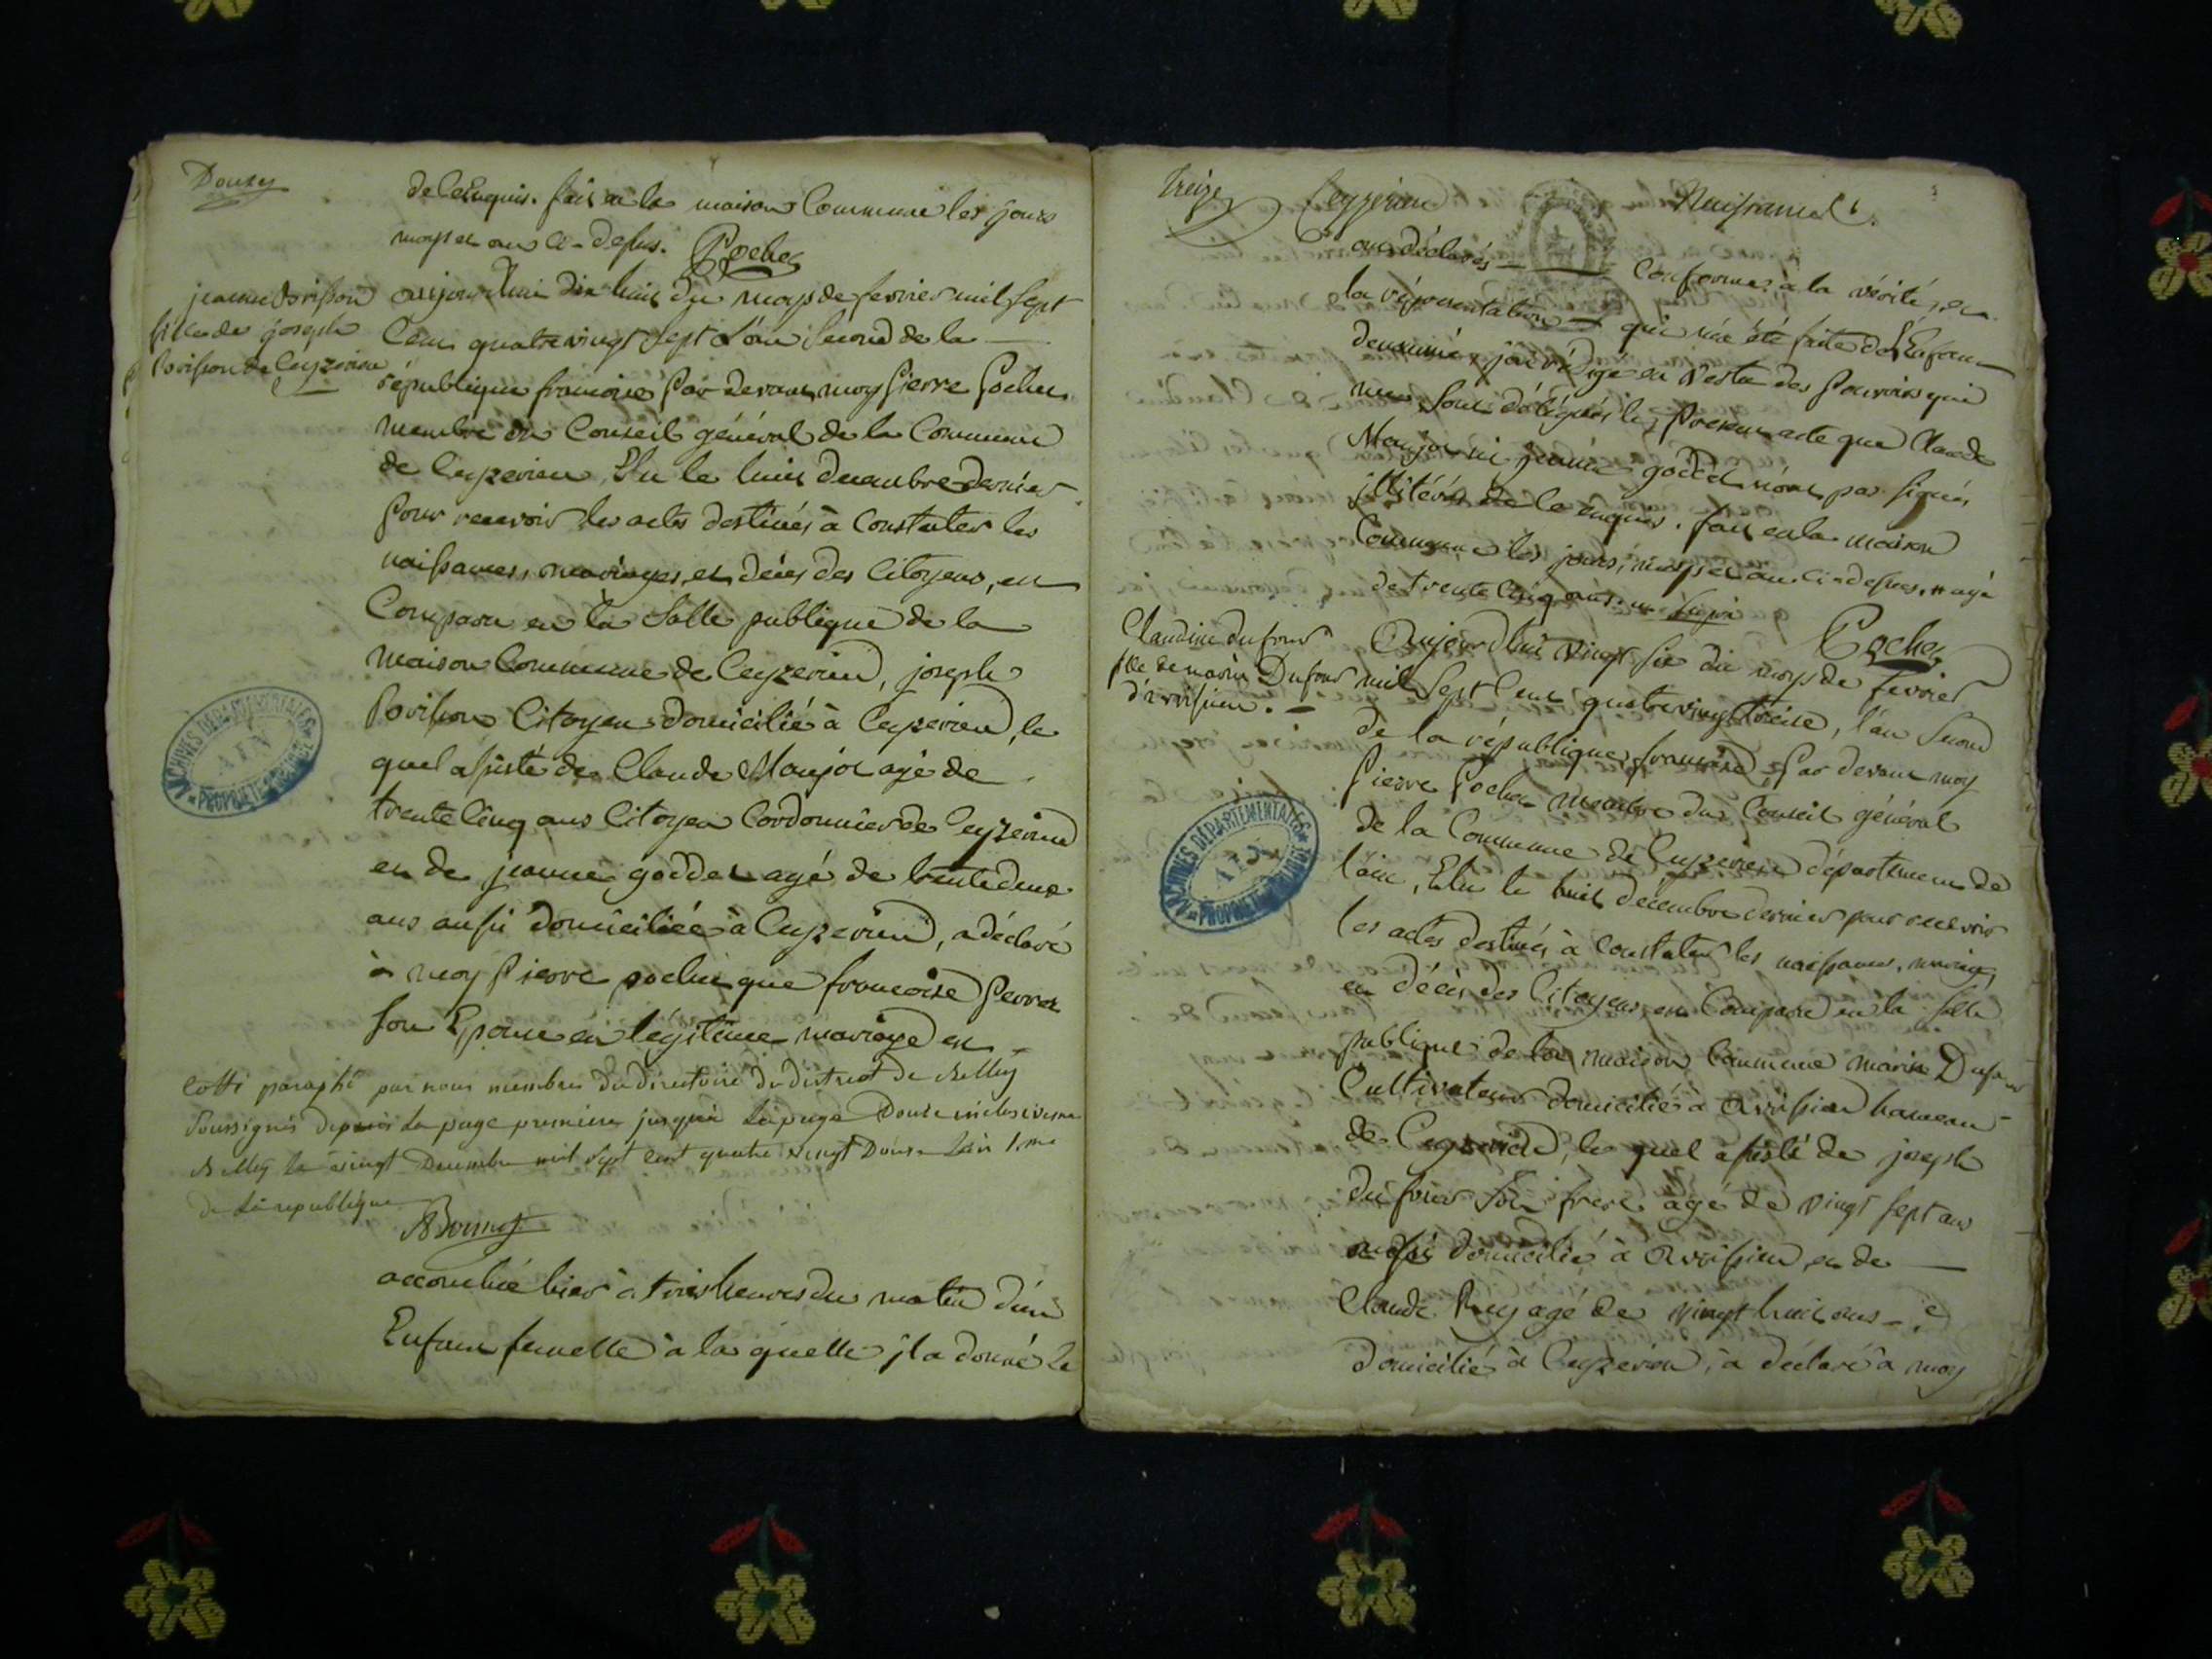 Douzy
de l'enquis. fait en la maison Commune les jours
moys et an ci-dessus. Pochet
jeanne Borisson
fille de joseph
Borisson de Ceyzerieu
aujourdhui dix huit du moys de fevrier mil sept
Cent quatre vingt sept L'an Second de la
république francoise Par devant moy Pierre Pochet
membre du Conseil général de la Commune
de Ceyzerieu, Elu le huit decembre dernier
Pour recevoir les actes destinés à Constater les
naissances, mariages, et décès des Citoyens, est
Comparu en la Salle publique de la
maison Commune de Ceyzerieu, joseph
Borisson Citoyen domicilié à Ceyzerieu, le
quel assisté de Claude Maujot agé de
trente Cinq ans Citoyen Cordonnier de Ceyzerieu
et de jeanne goddet agé de trente deux
ans aussi domiciliée à Ceyzerieu, a déclaré
à moy Pierre pochet que francoise Perret
son Epouse en légitime mariage est
Cotté paraphé par nous membre du directoire du district de Belley
Soussignés depuis La page premiere jusqu'à La page Douze inclusivement
Belley le vingt Decembre mil sept cent quatre vingt Douze L'an 1.er
de La republique
accouchée hier à trois heures du matin d'un
Enfant femelle à la quelle il a donné le
Treize Ceyzerieu Naissances
ont déclarés Conformes à la vérité, et
la réprésentation qui m'a été faite de L'Enfant
denommé, j'ai rédigé en Vertu des Pouvoirs qui
me sont délégués le Présent acte que Claude
Maujot ni jeanne goddet n'ont pas signés
illitérés de le enquis. fait en la maison
Commune les jours, moys et an ci-dessus, # agé
de trente Cinq ans.
Pochet
Claudine Dufour
fille de marin Dufour
d'avrissieu.
Aujourdhui vingt six du moys de fevrier
mil Sept Cent quatre vingt treize, l'an Second
de la république francoise, Par devant moy
Pierre Pochet membre du Conseil général
de la Commune de Ceyzerieu département de
l'ain, Elu le huit décembre dernier pour recevoir
les actes destinés à Constater les naissances, mariages
et décès des Citoyens, est Comparu en la Salle
publique de la maison Commune marin Dufour
Cultivateur domicilié à Avrissieu hameau
de Ceyzerieu, le quel assisté de joseph
Dufour Son frere agé de vingt sept ans
aussi domicilié à Avrissieu, et de
Claude Rey agé de vingt huit ans
domicilié à Ceyzerieu, a déclaré à moy
ARCHIVES DÉPARTEMENTALES
AIN
PROPRIÉTÉ PUBLIQUE
ARCHIVES DÉPARTEMENTALES
AIN
PROPRIÉTÉ PUBLIQUE